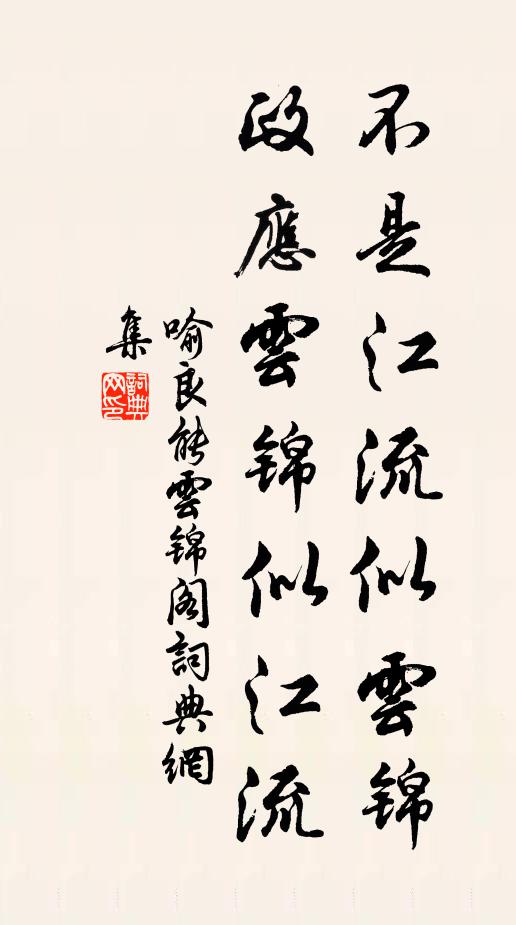 不是江流似雲錦
政應雲錦似江流
喻良能雲錦閣詞典網
集
詞典网印